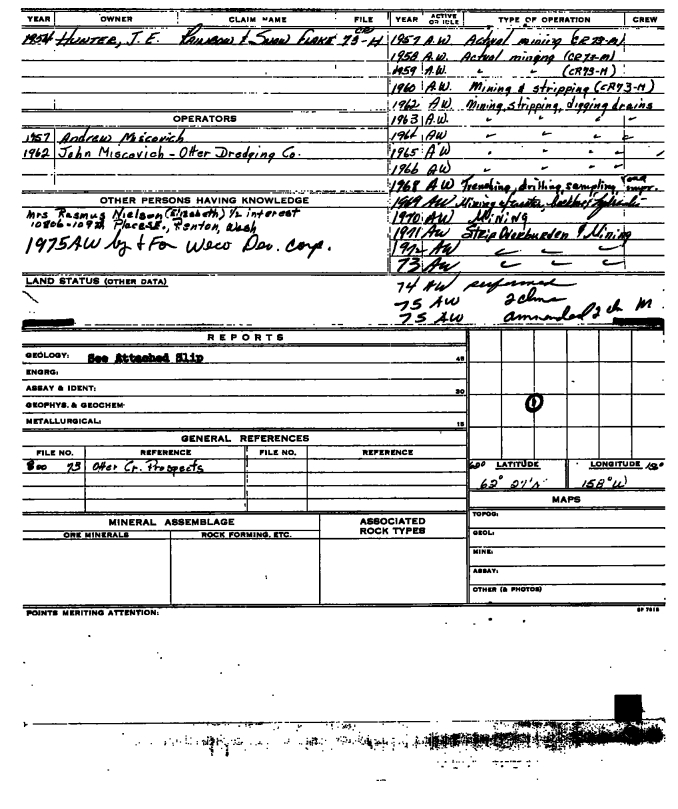 YEAR OWNER CLAIM NAME FILE YEAR ACTIVE OR IDLE TYPE OF OPERATION CREW
1954 HUNTER, J. E. RAINBOW & SNOW FLAKE 73-H 1957 A.W. Actual mining (CR73-M)
1958 A.W. Actual mining (CR73-M)
1959 A.W. " " (CR73-M)
1960 A.W. Mining & stripping (CR73-M)
1962 AW Mining, stripping, digging drains
OPERATORS 1963 A.W. " " " "
1957 Andrew Miscovich 1964 AW
1962 John Miscovich - Otter Dredging Co. 1965 AW
1966 AW
1968 AW Trenching, drilling, sampling
OTHER PERSONS HAVING KNOWLEDGE 1969 AW
Mrs Rasmus Nielson (Elizabeth) 1/2 interest 1970 AW MINING
Renton, Wash 1971 AW Strip Overburden & Mining
1975 AW by & For Weco Dev. corp. 1972 AW
73 AW
LAND STATUS (OTHER DATA) 74 AW performed
75 AW
75 AW
REPORTS
GEOLOGY: See Attached Slip 45
ENGRG:
ASSAY & IDENT: 30
GEOPHYS. & GEOCHEM-
METALLURGICAL: 15
GENERAL REFERENCES
FILE NO. REFERENCE FILE NO. REFERENCE
73 Otter Cr. Prospects
LATITUDE LONGITUDE
62° 27'N 158°W
MAPS
MINERAL ASSEMBLAGE ASSOCIATED ROCK TYPES TOPOG:
ORE MINERALS ROCK FORMING, ETC. GEOL:
MINE:
ASSAY:
OTHER (& PHOTOS)
POINTS MERITING ATTENTION: